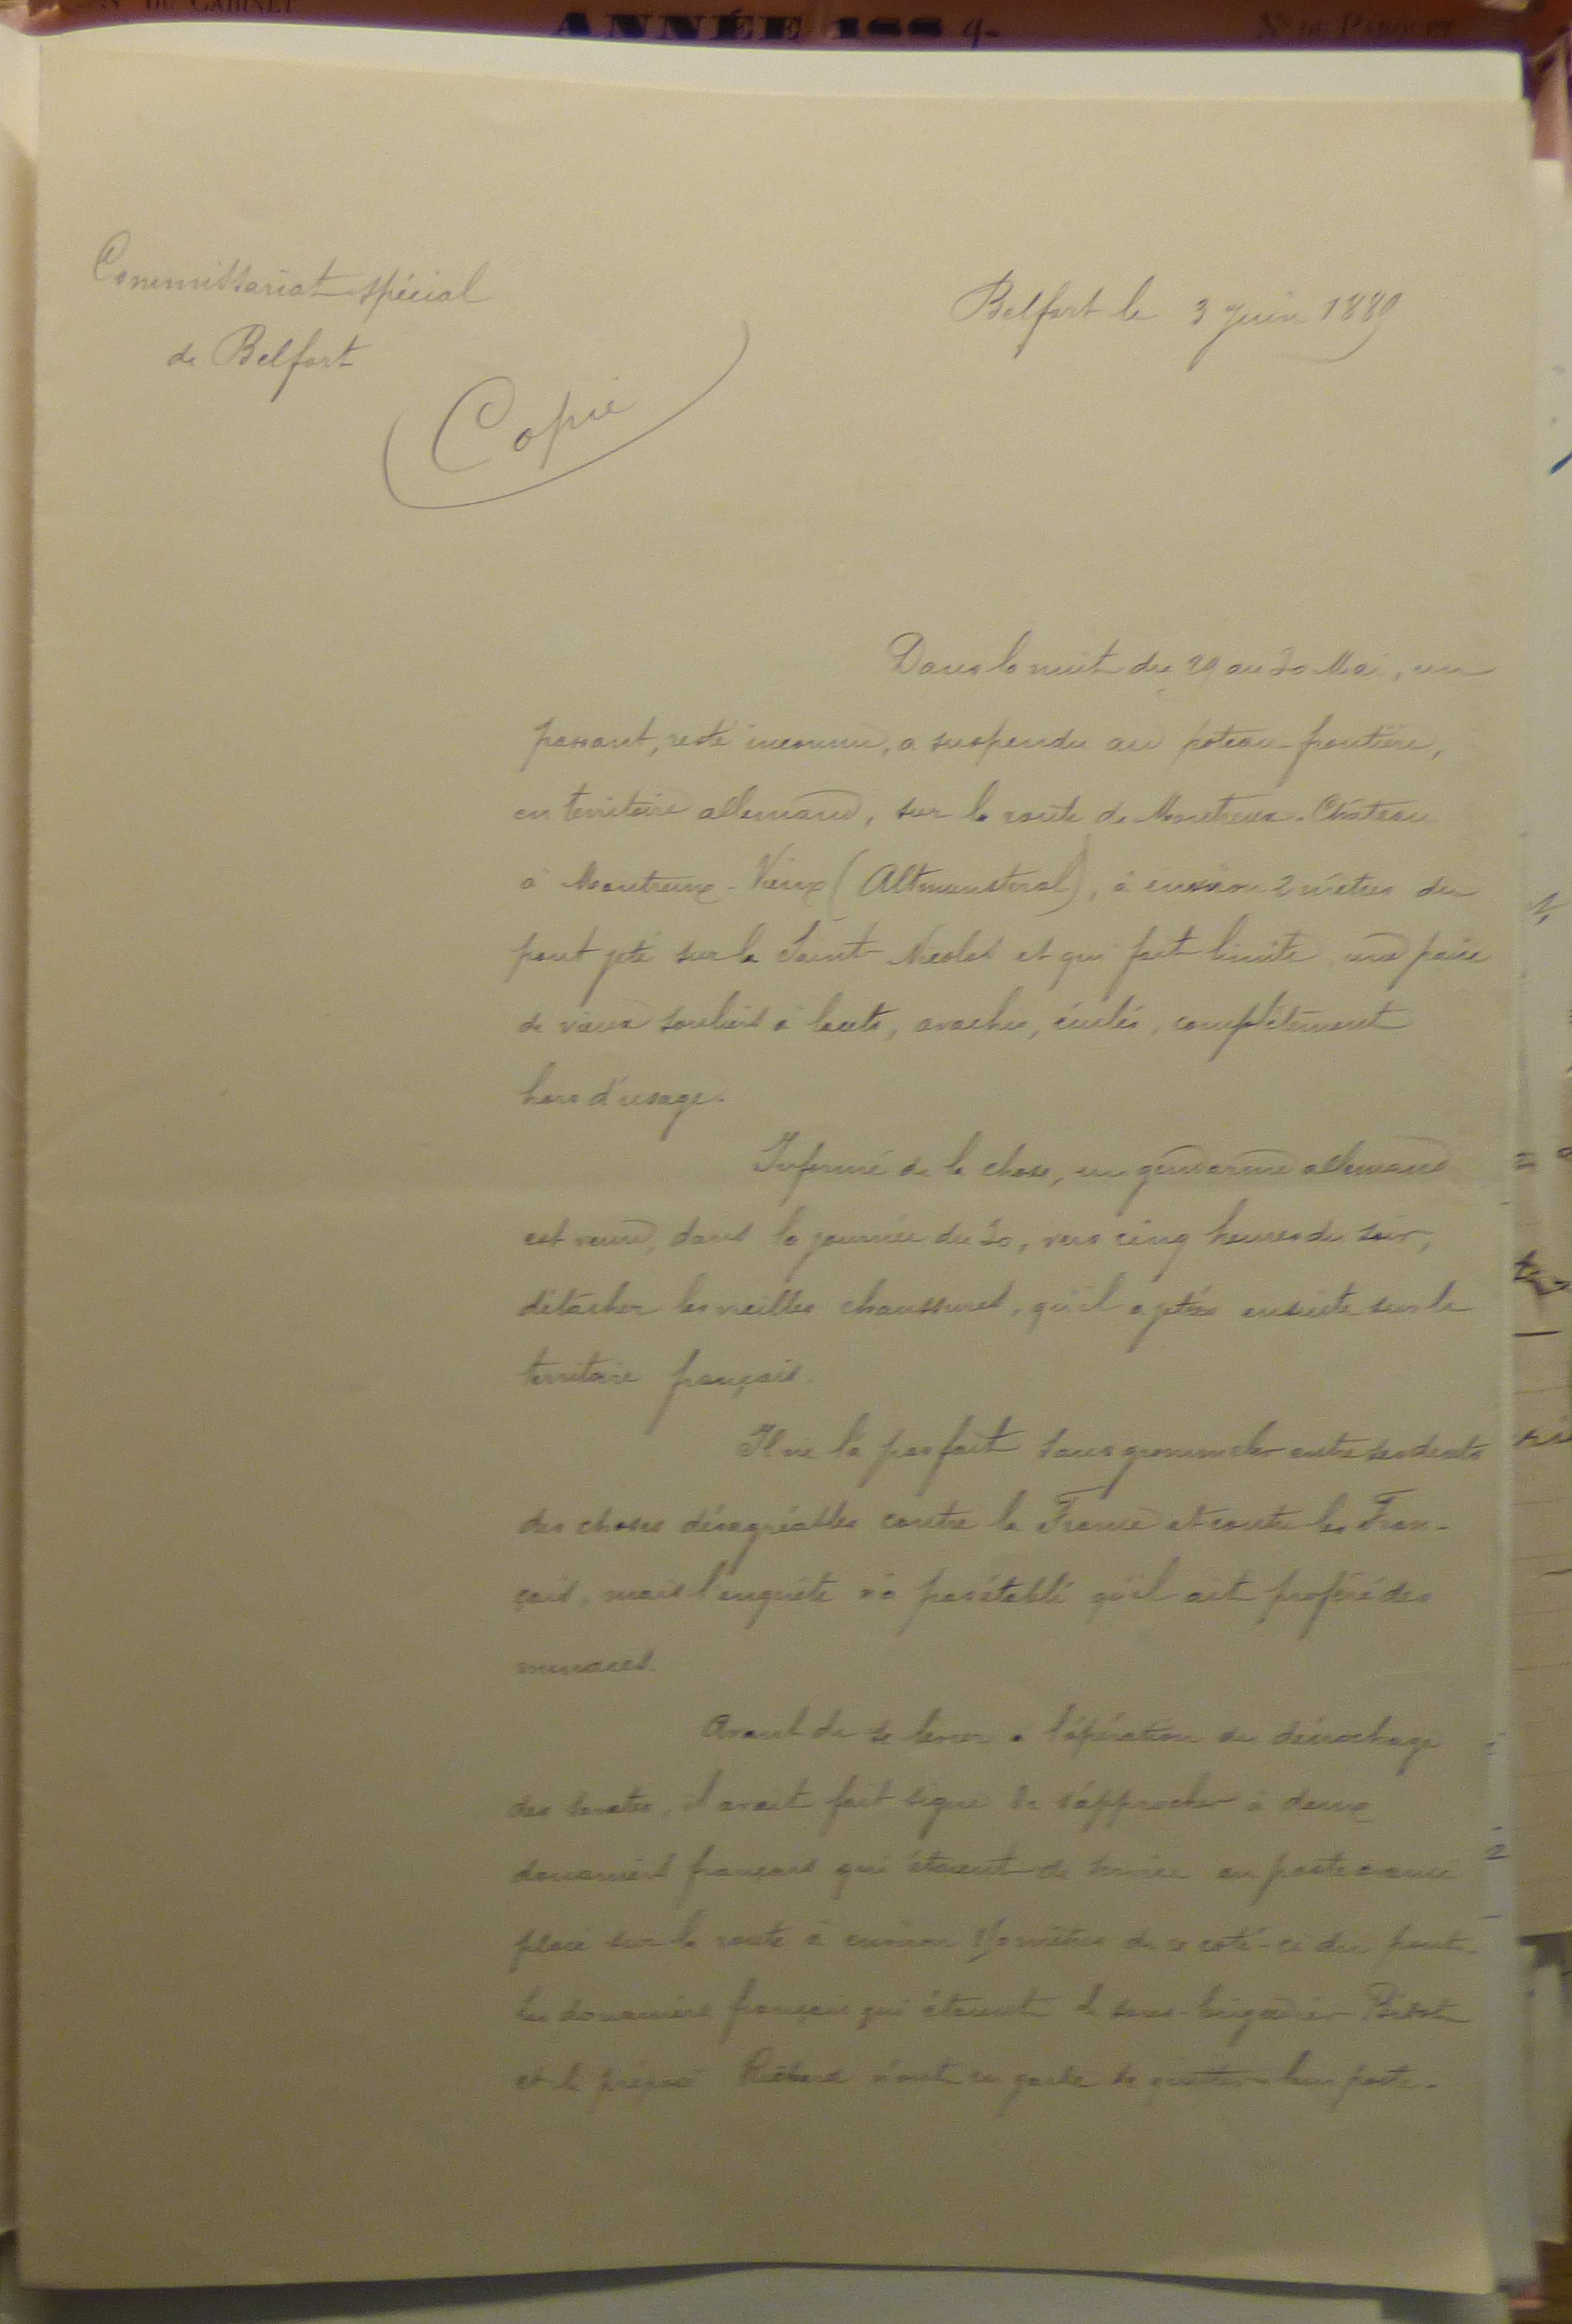 N° DU CABINET
ANNÉE 188
N° DU PARQUET
Commissariat spécial
de Belfort
Belfort le 3 Juin 1889
Copie
Dans la nuit du 29 au 30 Mai, un
passant, resté inconnu, a suspendu au poteau-frontière,
en territoire allemand, sur la route de Montreux-Château
à Montreux-Vieux (Altmunsterol), à environ 2 mètres du
pont jeté sur la Saint-Nicolas et qui fait limite, une paire
de vieux souliers à lacets, éculés, complètement
hors d'usage.
Informé de la chose, un gendarme allemand
est venu, dans la journée du 30, vers cinq heures du soir,
détacher les vieilles chaussures, qu'il a jetées ensuite sur le
territoire français.
Il ne l'a pas fait sans grommeler entre ses dents
des choses désagréables contre la France et contre les Fran-
çais, mais l'enquête n'a pas établi qu'il ait proféré des
menaces.
Avant de se livrer à l'opération du décrochage
des savates, il avait fait signe de s'approcher à deux
douaniers français qui étaient de service au poste avancé
placé sur la route à environ mètres de ce côté-ci du pont.
Les douaniers français qui étaient le sous-brigadier
et le préposé n'ont eu garde de quitter leur poste.